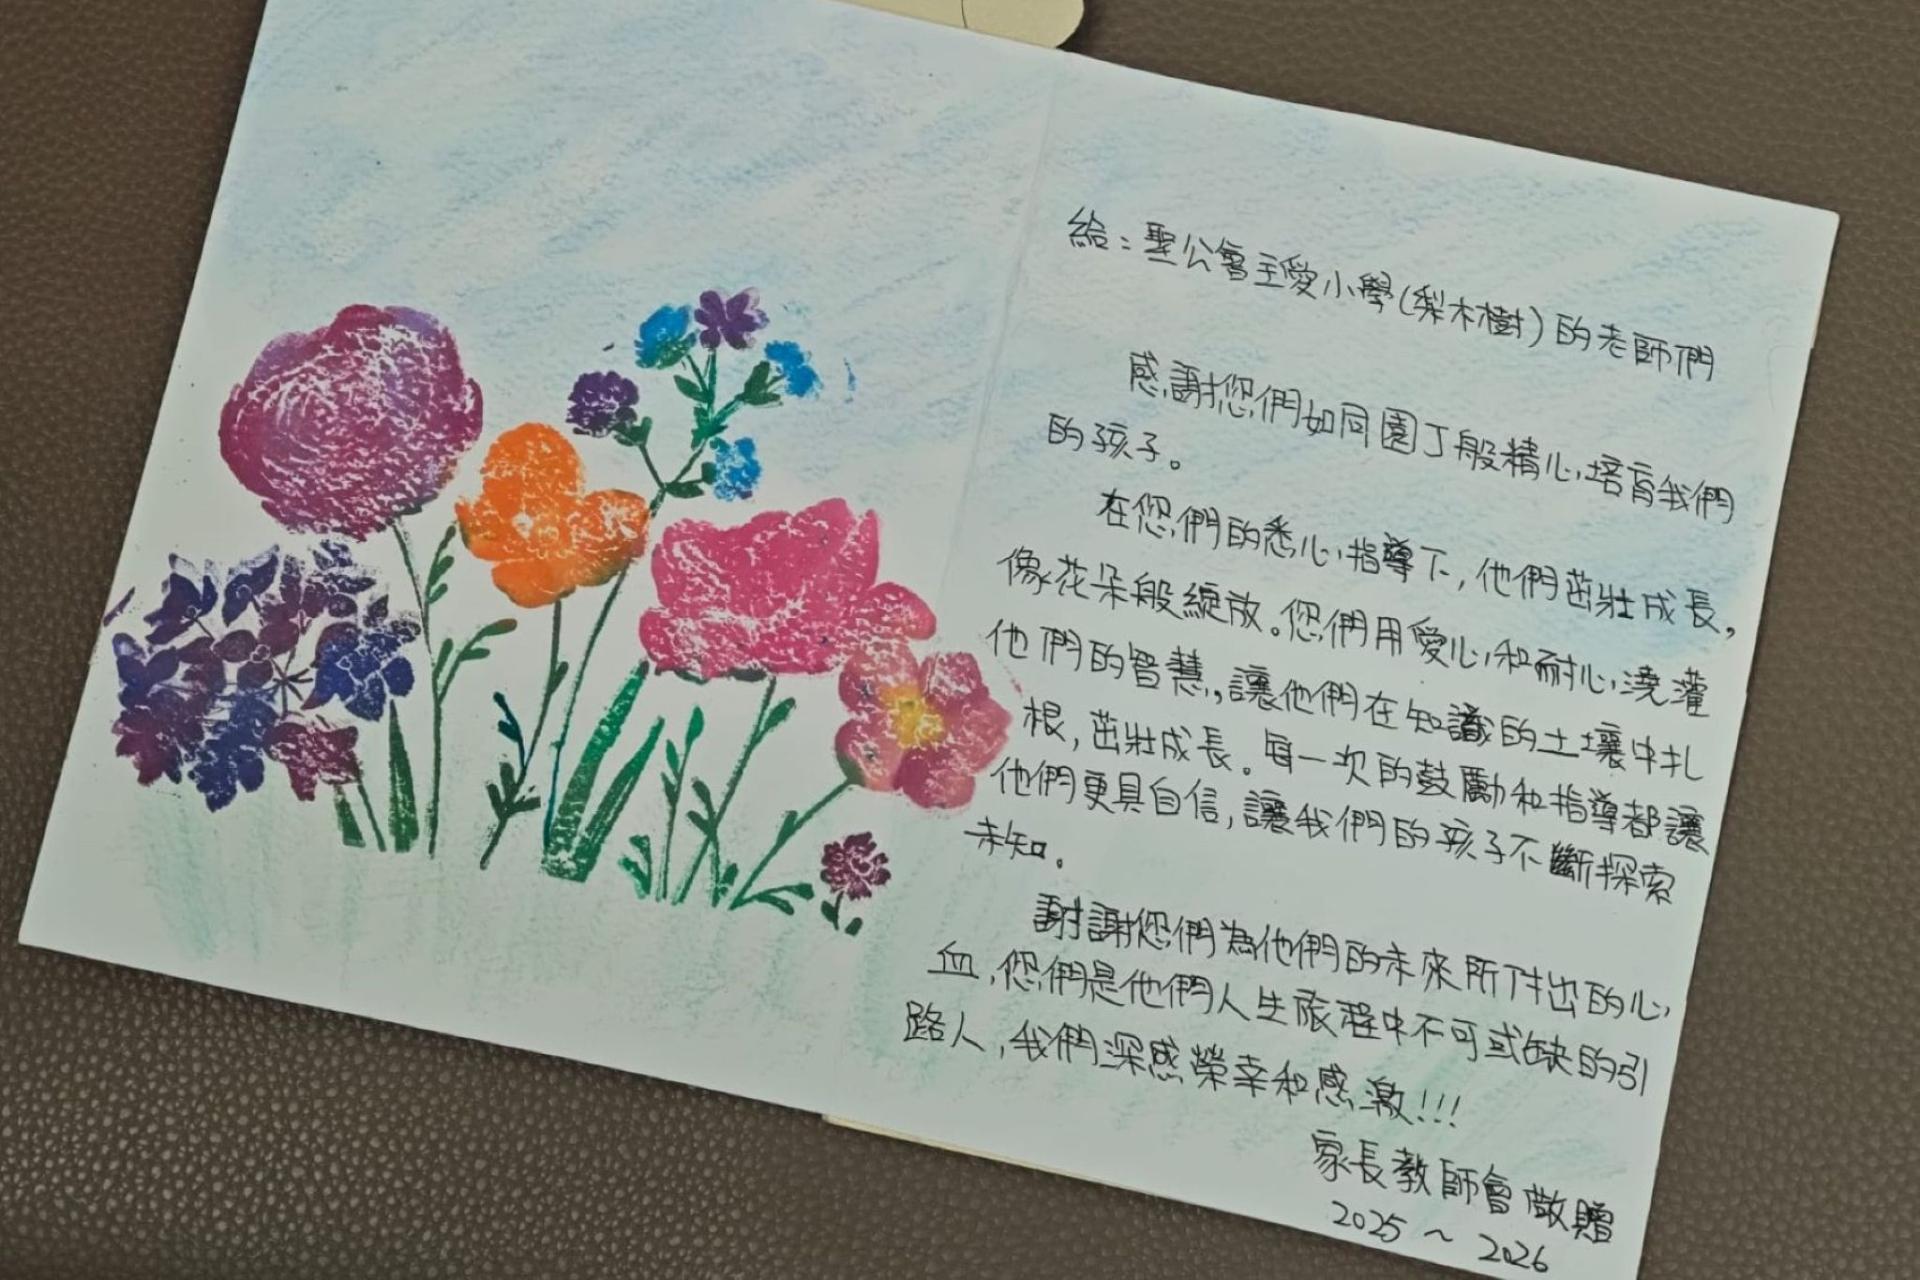 給：聖公會主愛小學(梨木樹)的老師們
感謝您們如同園丁般精心培育我們
的孩子。
在您們的悉心指導下，他們茁壯成長，
像花朵般綻放。您們用愛心和耐心澆灌
他們的智慧，讓他們在知識的土壤中扎
根，茁壯成長。每一次的鼓勵和指導都讓
他們更具自信，讓我們的孩子不斷探索
未知。
謝謝您們為他們的未來所付出的心
血，您們是他們人生旅程中不可或缺的引
路人，我們深感榮幸和感激!!!
家長教師會敬贈
2025～2026